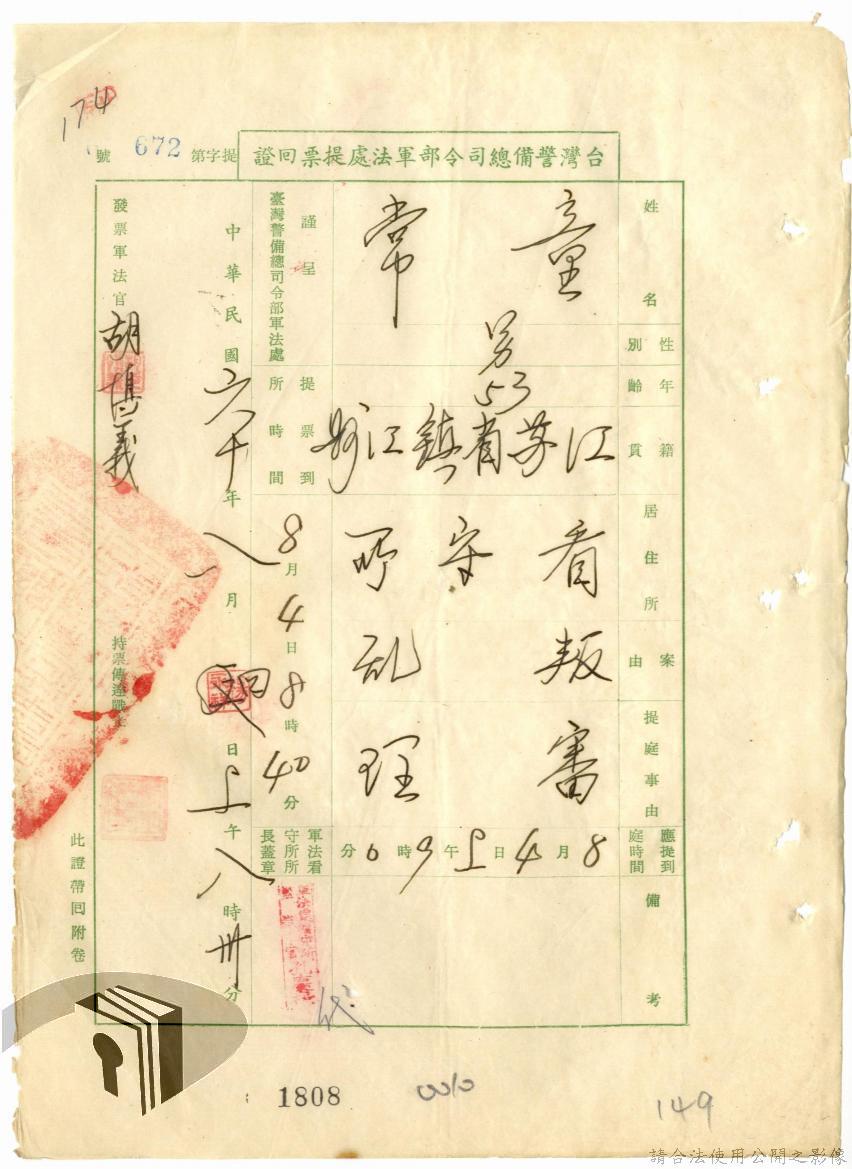 174
台灣警備總司令部軍法處提票回證
提字第 672 號
姓名 童常
性別 男
年齡 53
籍貫 江苏省鎮江縣
居住所 看守所
案由 叛乱
提庭事由 審理
應提到庭時間 8月4日上午9時0分
備考
謹呈
臺灣警備總司令部軍法處
提票到所時間 8月4日8時40分
軍法看守所所長蓋章
代
中華民國六十年八月四日上午八時卅分
發票軍法官 胡
義
持票傳達戰士
此證帶回附卷
1808
0010
149
請合法使用公開之影像